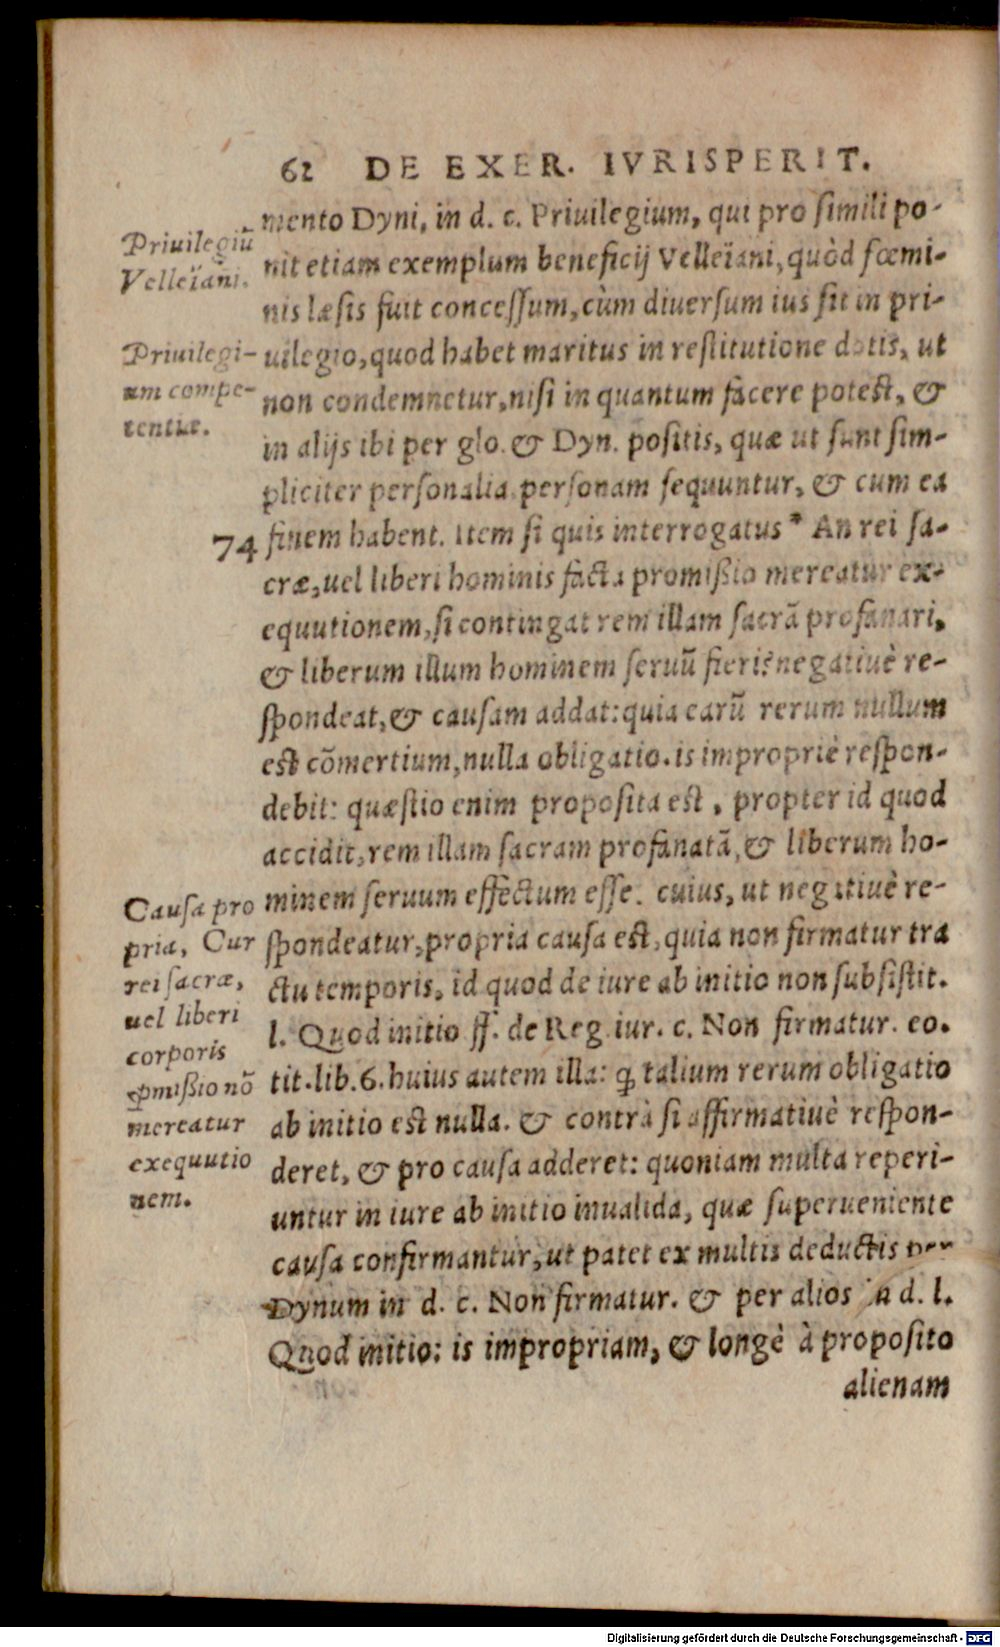 62 DE EXER. IVRISPERIT.
mento Dyni, in d. c. Priuilegium, qui pro simili po-
nit etiam exemplum beneficij Velleïani, quòd fœmi-
nis læsis fuit concessum, cùm diuersum ius sit in pri-
uilegio, quod habet maritus in restitutione dotis, ut
non condemnetur, nisi in quantum facere potest, &
in alijs ibi per glo. & Dyn. positis, quæ ut sunt sim-
pliciter personalia personam sequuntur, & cum ea
74 finem habent. Item si quis interrogatus * An rei sa-
cræ, uel liberi hominis facta promißio mereatur ex-
equutionem, si contingat rem illam sacrā profanari,
& liberum illum hominem seruū fieri? negatiuè re-
spondeat, & causam addat: quia earū rerum nullum
est cōmertium, nulla obligatio. is impropriè respon-
debit: quæstio enim proposita est, propter id quod
accidit, rem illam sacram profanatā, & liberum ho-
minem seruum effectum esse. cuius, ut negatiuè re-
spondeatur, propria causa est, quia non firmatur tra
ctu temporis, id quod de iure ab initio non subsistit.
l. Quod initio ff. de Reg. iur. c. Non firmatur. eo.
tit. lib. 6. huius autem illa: ꝙ talium rerum obligatio
ab initio est nulla. & contrà si affirmatiuè respon-
deret, & pro causa adderet: quoniam multa reperi-
untur in iure ab initio inualida, quæ superueniente
causa confirmantur, ut patet ex multis deductis per
Dynum in d. c. Non firmatur. & per alios in d. l.
Quod initio: is impropriam, & longè à proposito
alienam
Priuilegiū
Velleïani.
Priuilegi-
um compe-
tentiæ.
Causa pro
pria, Cur
rei sacræ,
uel liberi
corporis
ꝓmißio nō
mereatur
exequutio
nem.
Digitalisierung gefördert durch die Deutsche Forschungsgemeinschaft - DFG